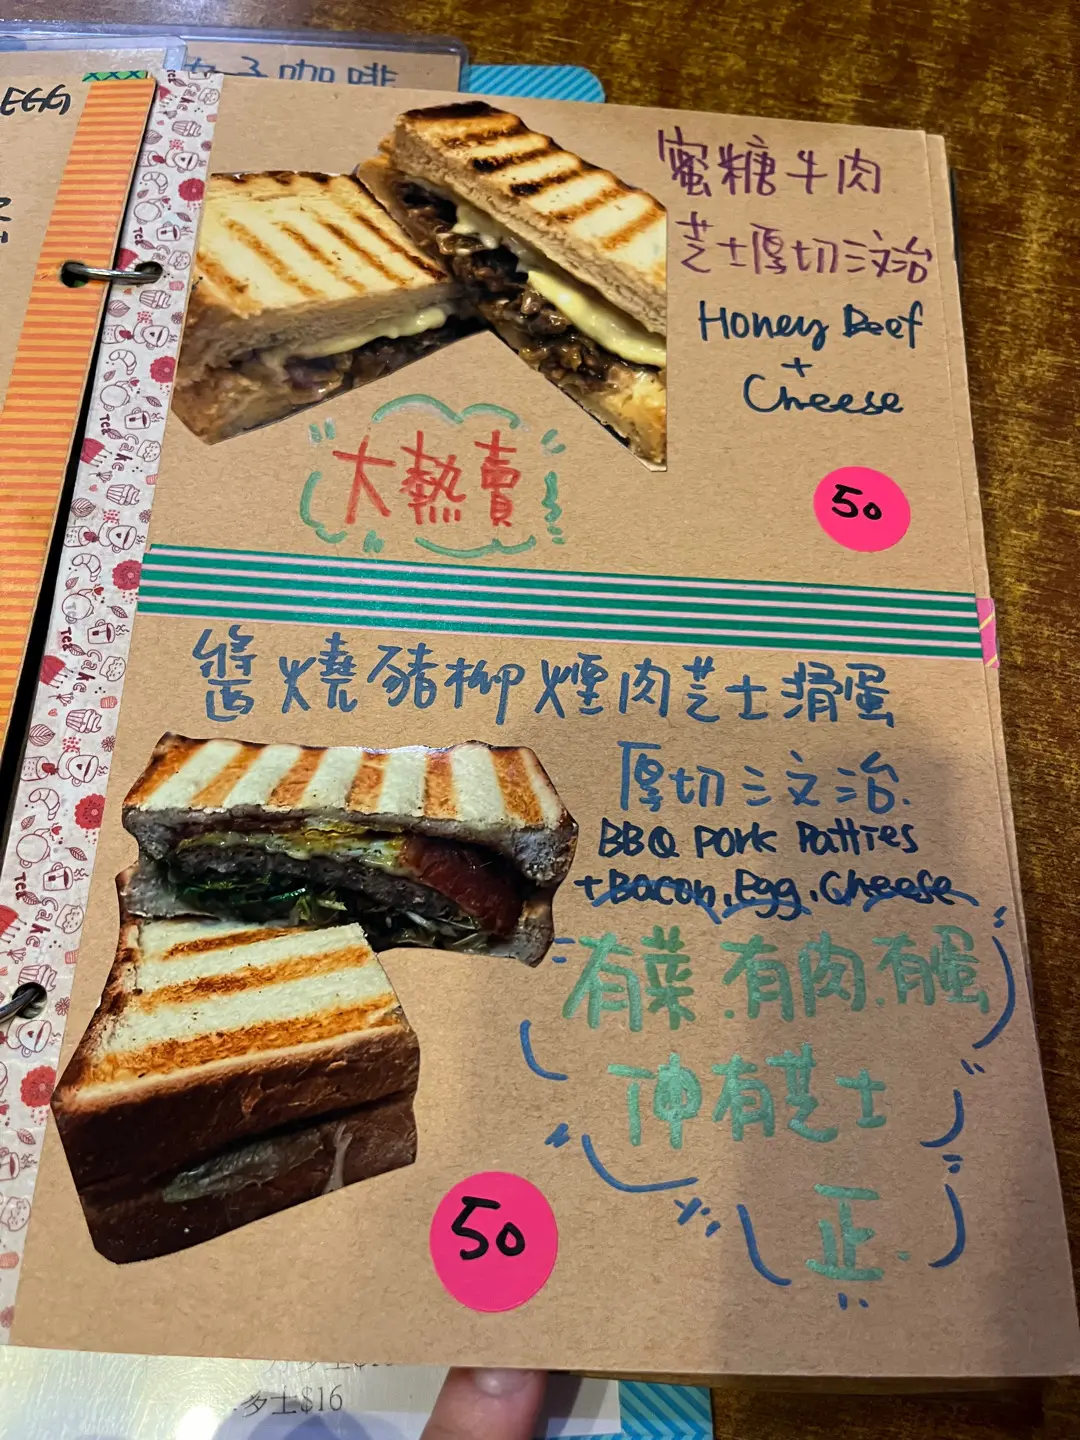 EGG
子咖啡
蜜糖牛肉
芝士厚切三文治
Honey Beef
+
Cheese
大熱賣
50
醬燒豬柳煙肉芝士滑蛋
厚切三文治.
BBQ Pork Patties
+Bacon.Egg.Cheese
有菜.有肉.有蛋
仲有芝士
正.
50
多士$16